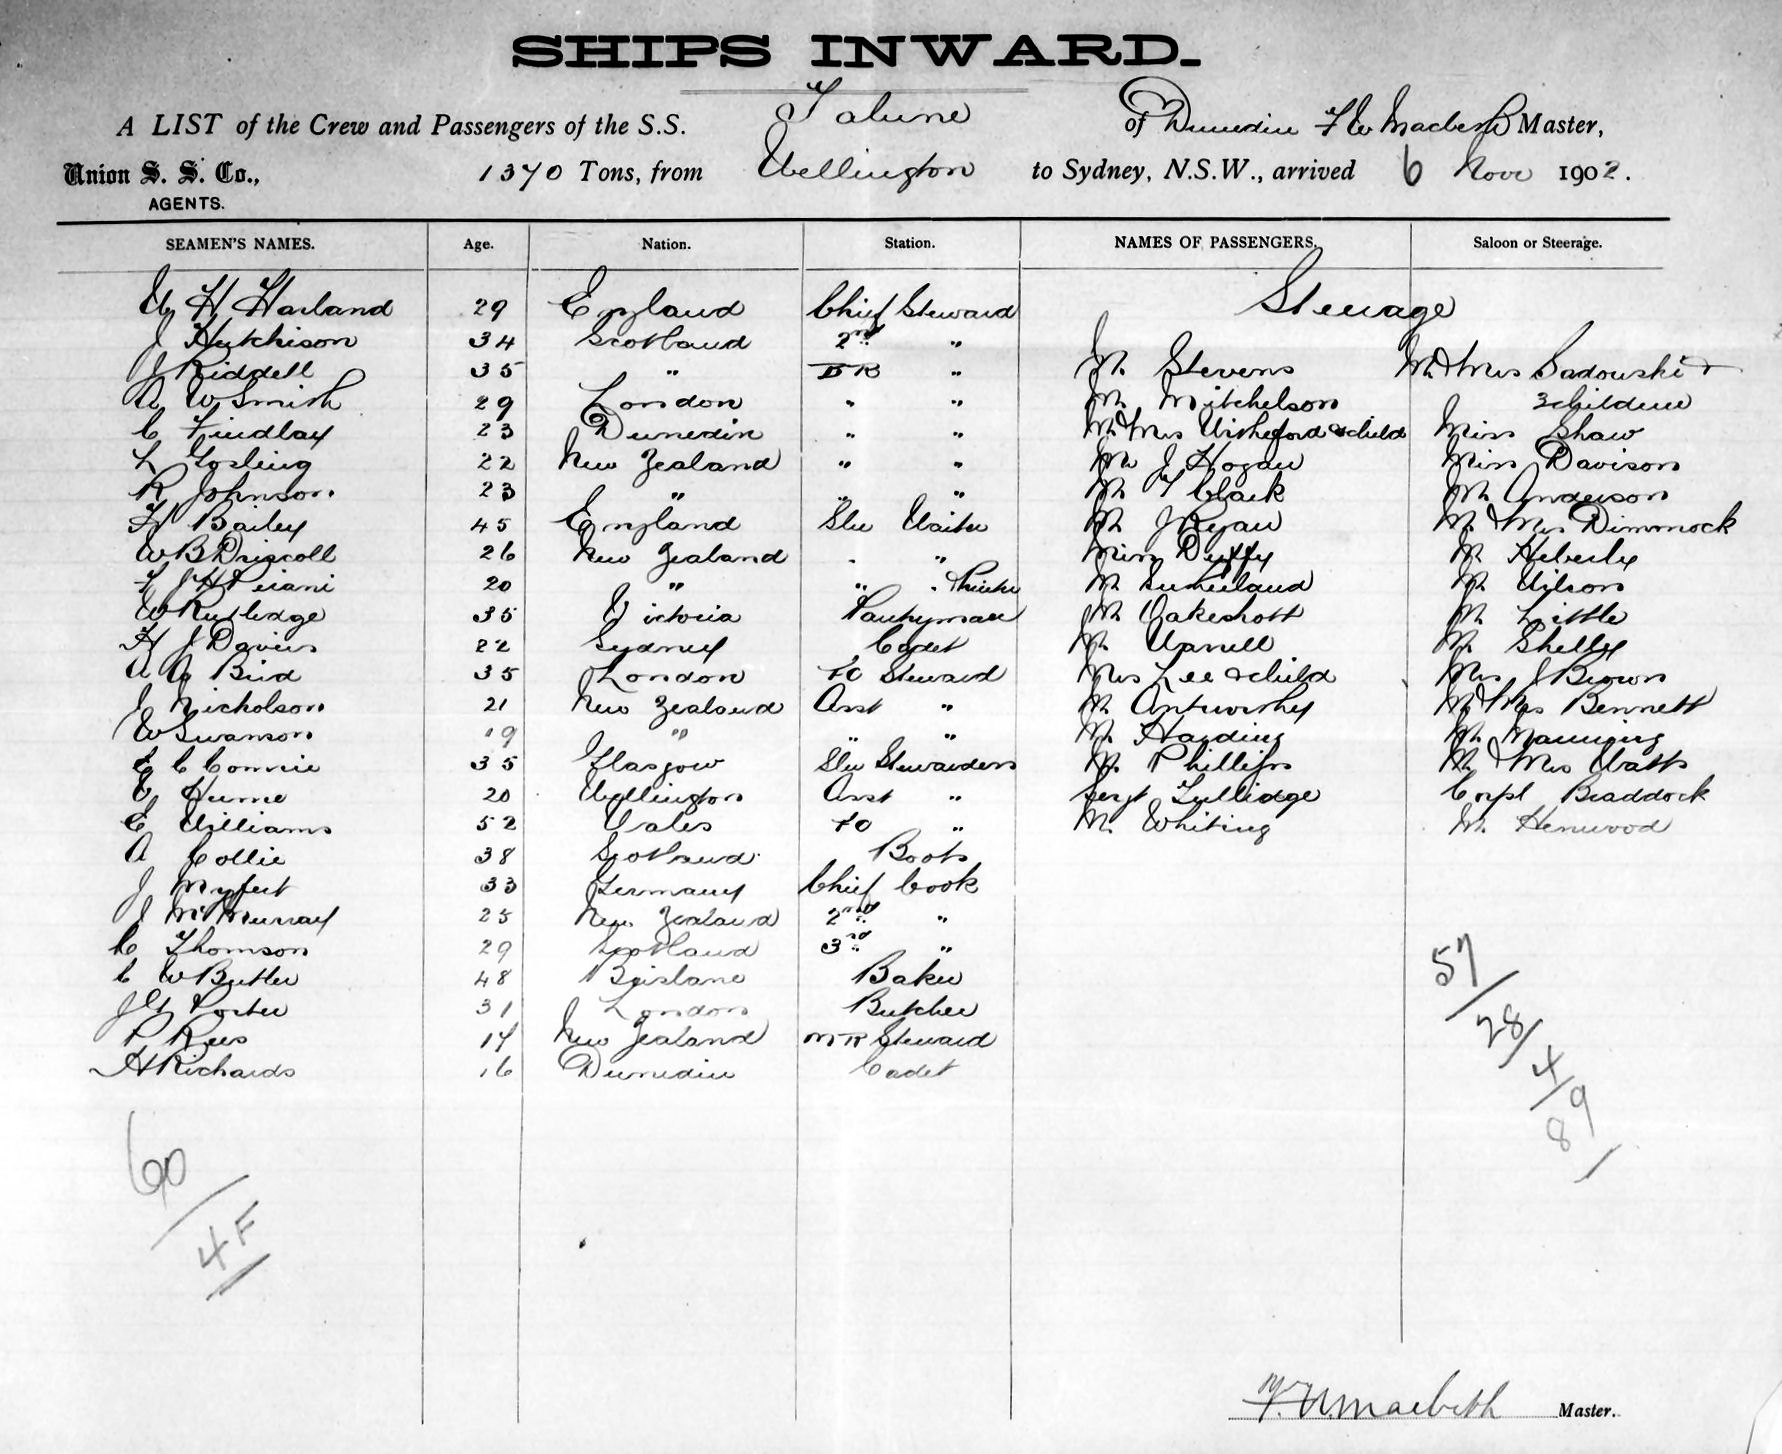 SHIPS INWARD.
A LIST of the Crew and Passengers of the S.S. Talune of Dunedin F W Macbeth Master,
Union S. S. Co., 1370 Tons, from Wellington to Sydney, N.S.W., arrived 6 Novr 1902.
AGENTS.
SEAMEN'S NAMES. Age. Nation. Station. NAMES OF PASSENGERS. Saloon or Steerage.
W H Harland 29 England Chief Steward Steerage
J Hutchison 34 Scotland 2nd "
J Riddell 35 " BR " Mr Stevens Mr & Mrs Sadowski &
A W Smith 29 London " " Mr Mitchelson 3 children
C Findlay 23 Dunedin " " Mr & Mrs Witheford & child Miss Shaw
L Gosling 22 New Zealand " " Mr J Hogan Miss Davison
R Johnson 23 " " " Mr T Clark Mr Anderson
H Bailey 45 England Sln Waiter Mr J Ryan Mr & Mrs Dimmock
W B Driscoll 26 New Zealand " " Miss Duffy Mr Heberley
F J H 20 " " " Printer Mr Sutherland Mr Wilson
W Rutledge 35 Victoria Pantryman Mr Oakeshott Mr Little
H J Davies 22 Sydney Cadet Mr Warell Mr Shelly
A G Bird 35 London FC Steward Mrs Lee & child Mrs J Brown
J Nicholson 21 New Zealand Asst " Mr Antworthy Mr & Mrs Bennett
W Swanson 19 " " " Mr Harding Mr Manning
E C Connie 35 Glasgow Sln Stewardess Mr Phillips Mr & Mrs Watts
E Hume 20 Wellington Asst " Sergt Gullidge Corpl Braddock
E Williams 52 Wales FC " Mr Whiting Mr Henwood
A Collie 38 Scotland Boots
J 33 Germany Chief Cook
J McMurray 25 New Zealand 2nd "
C Thomson 29 Scotland 3rd "
C W Butler 48 Brisbane Baker
J W Porter 31 London Butcher
P Rees 17 New Zealand MR Steward
A Richards 16 Dunedin Cadet
57/
28/
4/
89/
60/
4F
F. W. Macbeth Master.